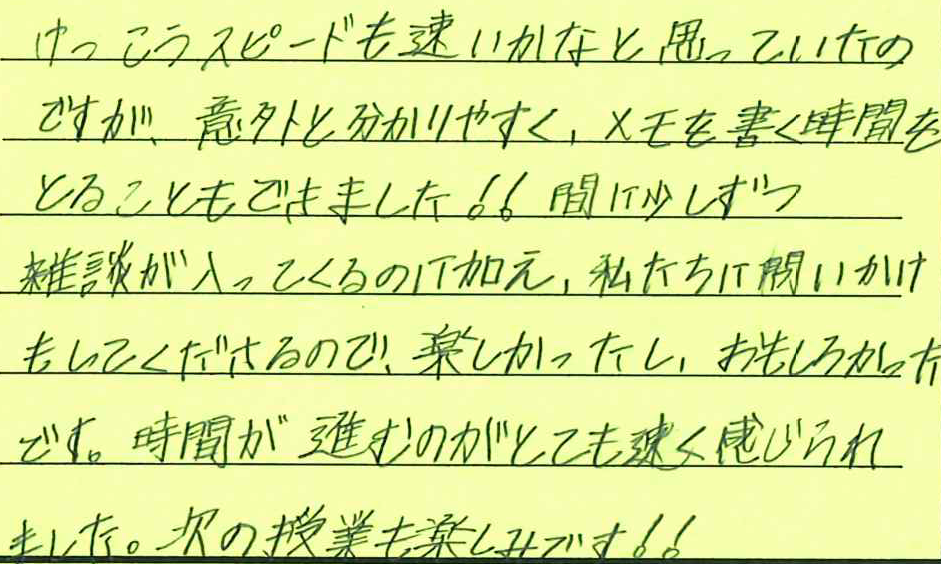 けっこうスピードも速いかなと思っていたの
ですが、意外と分かりやすく、メモを書く時間を
とることもできました!! 間に少しずつ
雑談が入ってくるのに加え、私たちに問いかけ
もしてくださるので、楽しかったし、おもしろかった
です。時間が進むのがとても速く感じられ
ました。次の授業も楽しみです!!